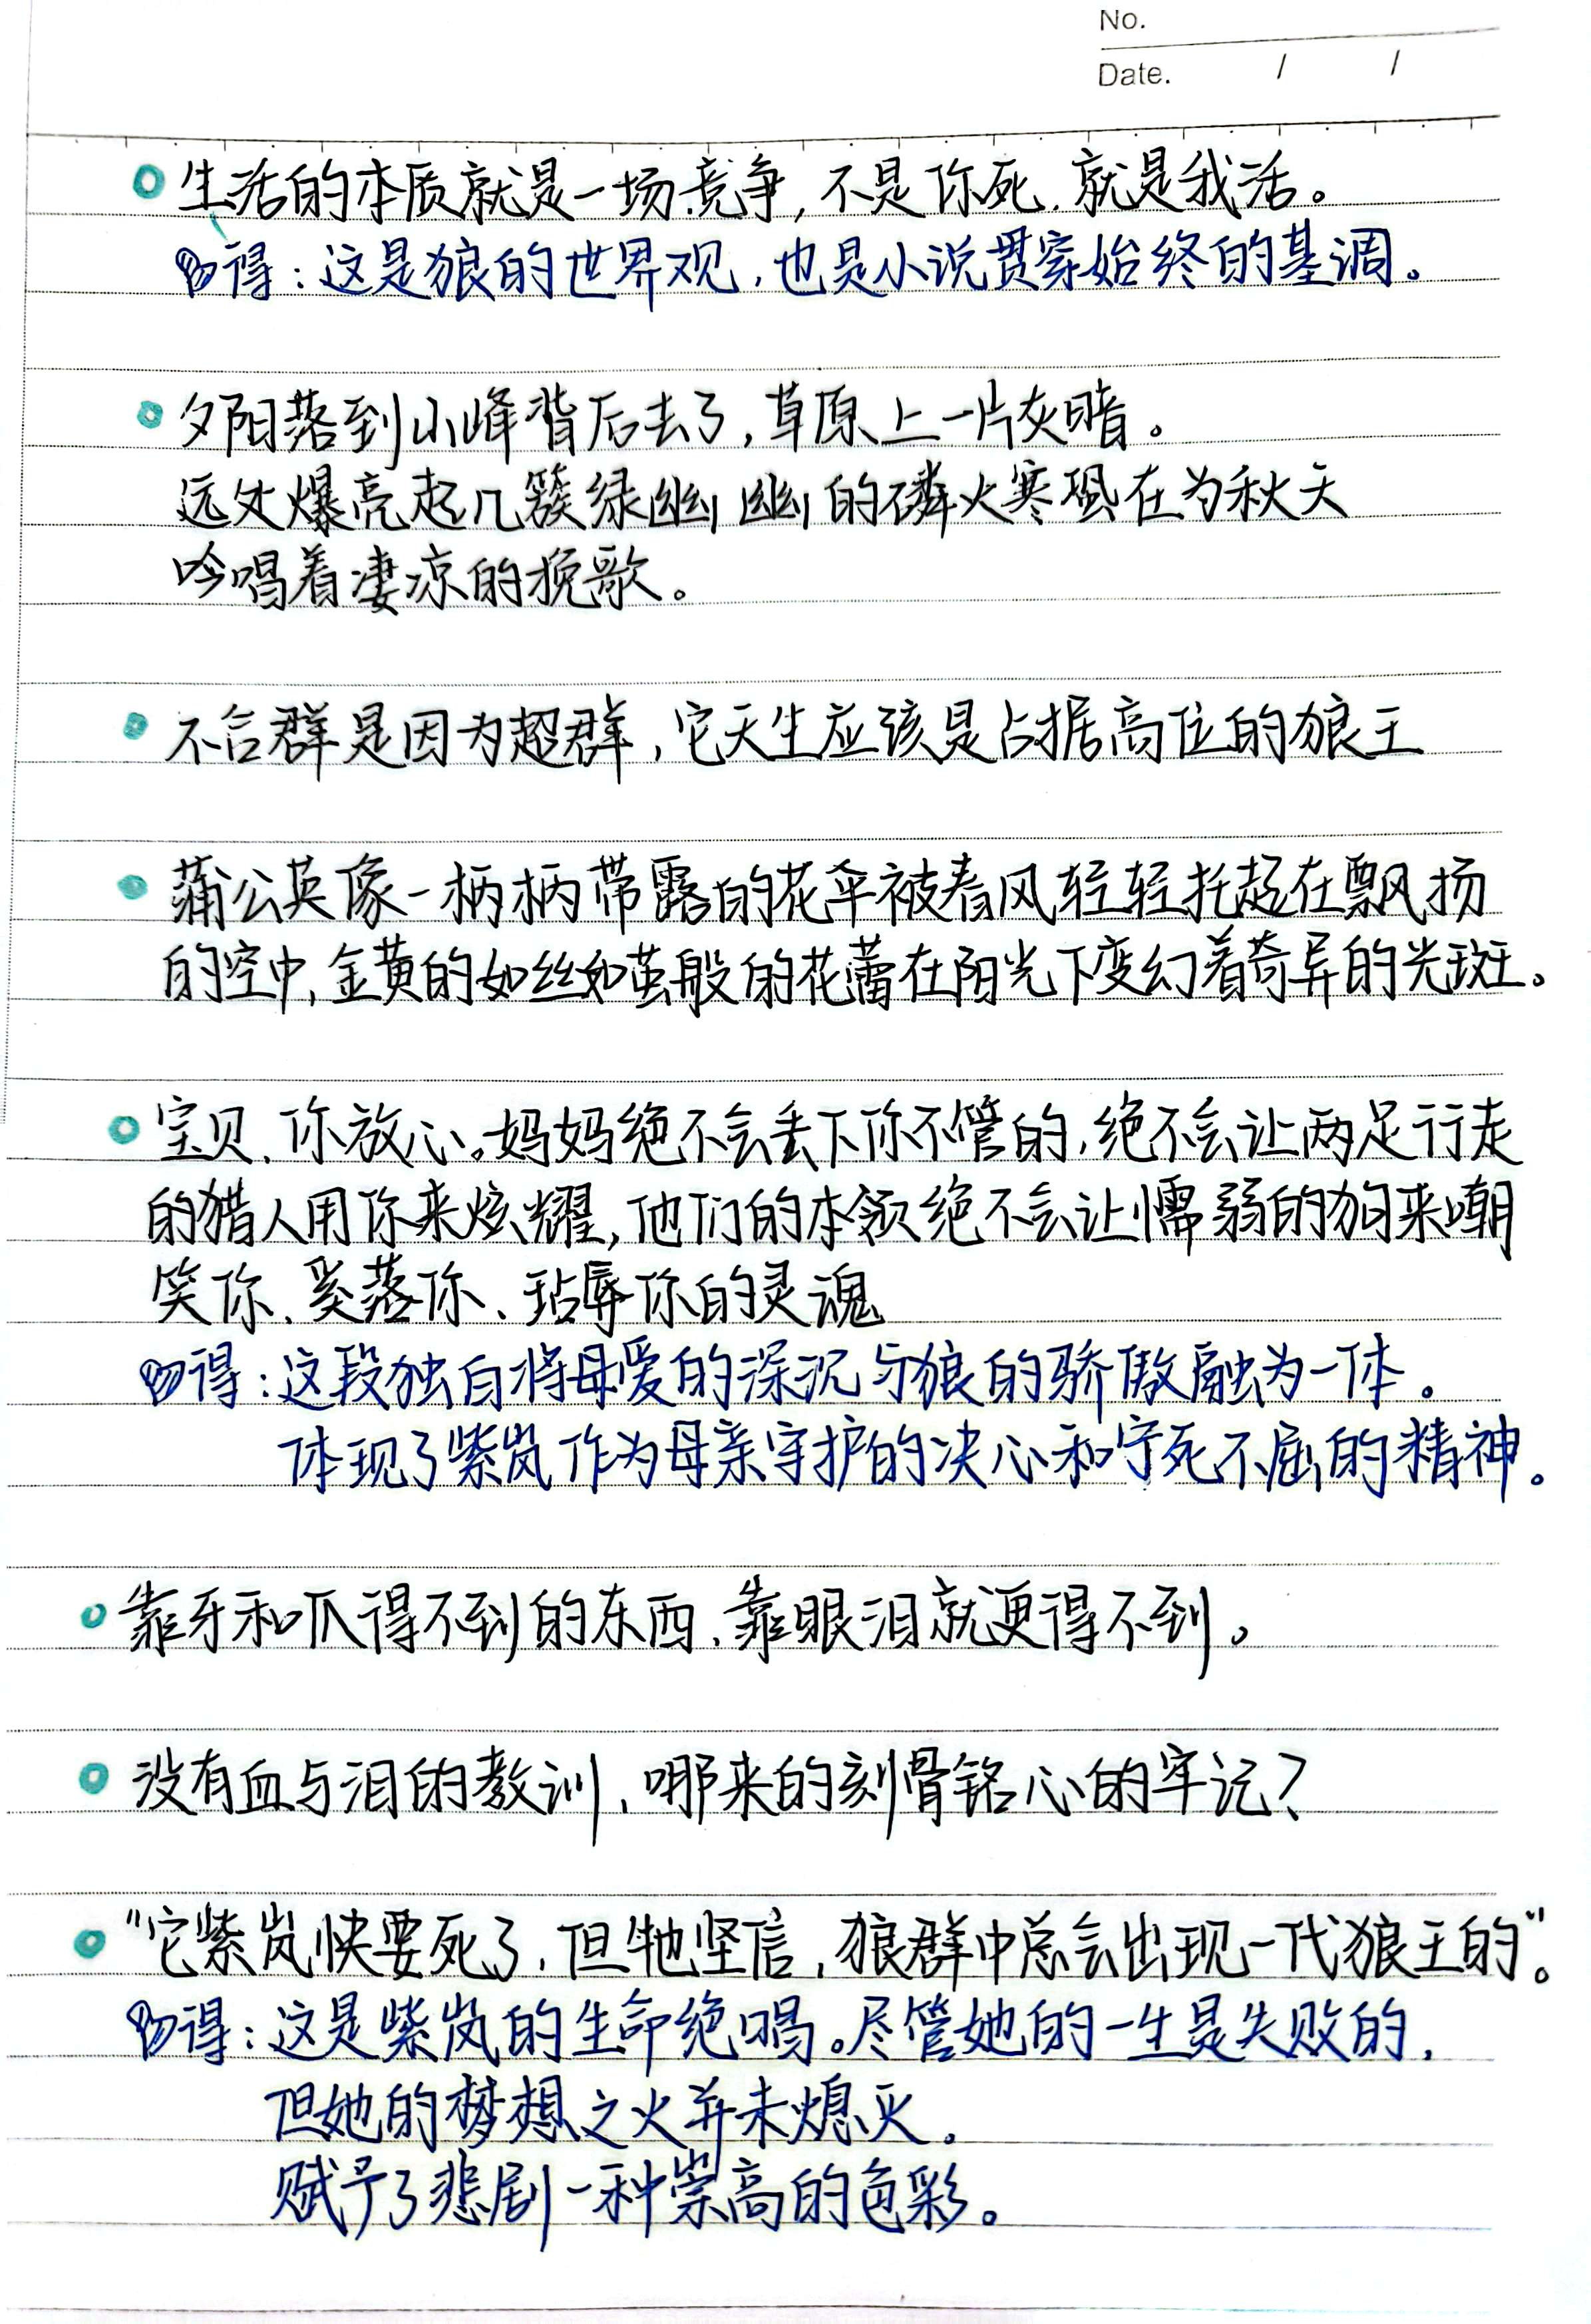 No.
Date. / /
生活的本质就是一场竞争,不是你死,就是我活。
心得:这是狼的世界观,也是小说贯穿始终的基调。
夕阳落到山峰背后去了,草原上一片灰暗。
远处爆亮起几簇绿幽幽的磷火寒风在为秋天
吟唱着凄凉的挽歌。
不合群是因为超群,它天生应该是占据高位的狼王
蒲公英像一柄柄带露的花伞被春风轻轻托起在飘扬
的空中,金黄的如丝如茧般的花蕾在阳光下变幻着奇异的光斑。
宝贝、你放心。妈妈绝不会丢下你不管的,绝不会让两足行走
的猎人用你来炫耀,他们的本领绝不会让懦弱的狗来嘲
笑你、奚落你、玷辱你的灵魂
心得:这段独白将母爱的深沉与狼的骄傲融为一体。
体现了紫岚作为母亲守护的决心和宁死不屈的精神。
靠牙和爪得不到的东西、靠眼泪就更得不到。
没有血与泪的教训、哪来的刻骨铭心的牢记?
"它紫岚快要死了,但牠坚信,狼群中总会出现一代狼王的"。
心得:这是紫岚的生命绝唱。尽管她的一生是失败的,
但她的梦想之火并未熄灭。
赋予了悲剧一种崇高的色彩。